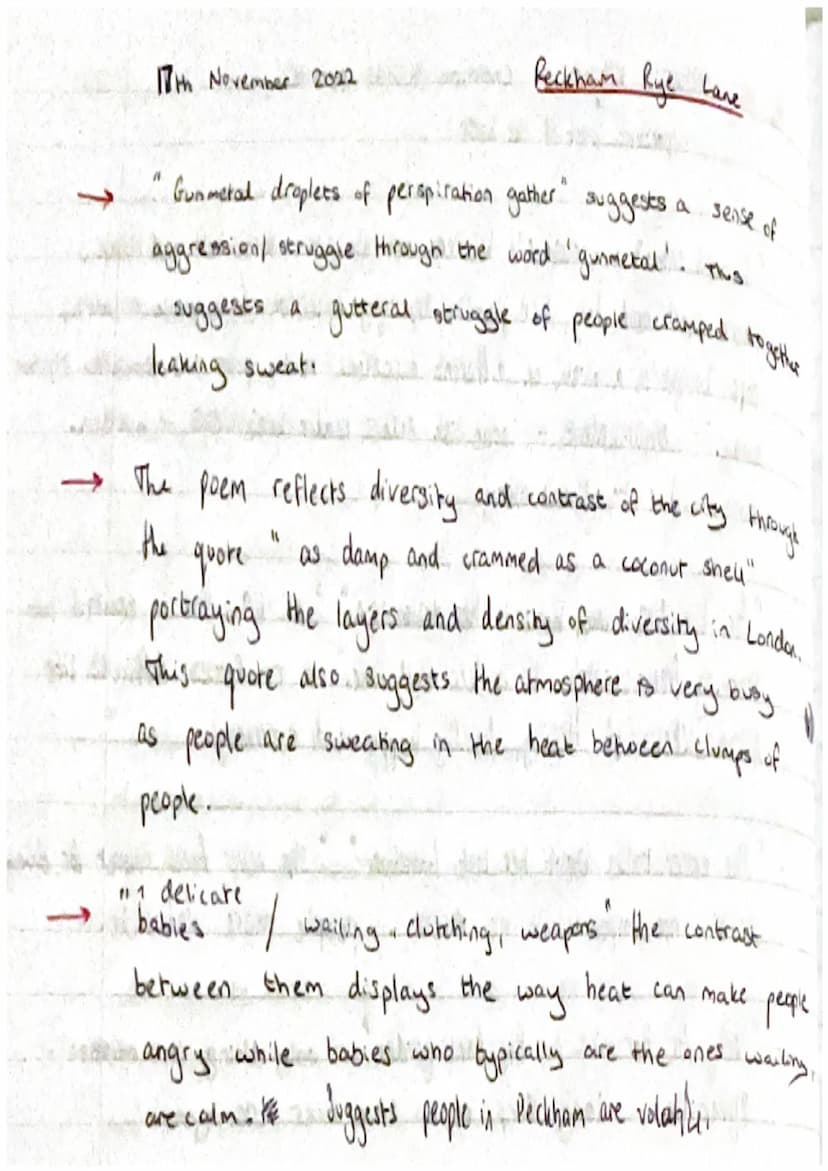 17th November 2022
Peckham Rye Lane
→ "Gunmetal droplets of perspiration gather" suggests a sense of
aggression/struggle through the word 'gunmetal'. This
suggests a gutteral struggle of people cramped together
leaking sweat.
→ The poem reflects diversity and contrast of the city through
the quote "as damp and crammed as a coconut shell"
portraying the layers and density of diversity in London.
This quote also suggests the atmosphere is very busy
as people are sweating in the heat between clumps of
people.
delicate
→ babies / wailing clutching, weapons" the contrast
between them displays the way heat can make people
angry while babies who typically are the ones wailing,
are calm. Suggests people in Peckham are volatile.